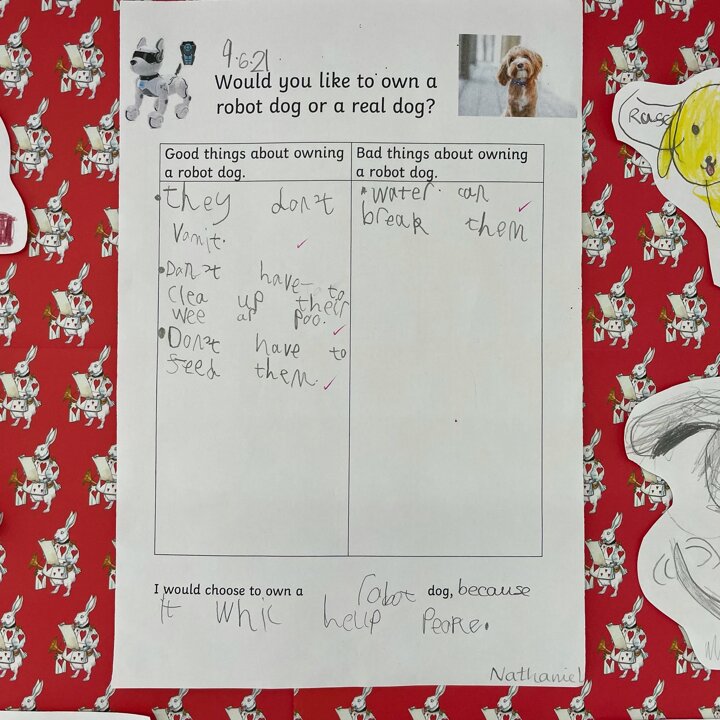 9.6.21
Would you like to own a
robot dog or a real dog?
Good things about owning
a robot dog.
Bad things about owning
a robot dog.
• they don't
Vomit.
• Don't have to
clea up their
wee ar poo.
• Don't have to
feed them.
• water can
break them
I would choose to own a robot dog, because
It Whic help People.
Nathaniel